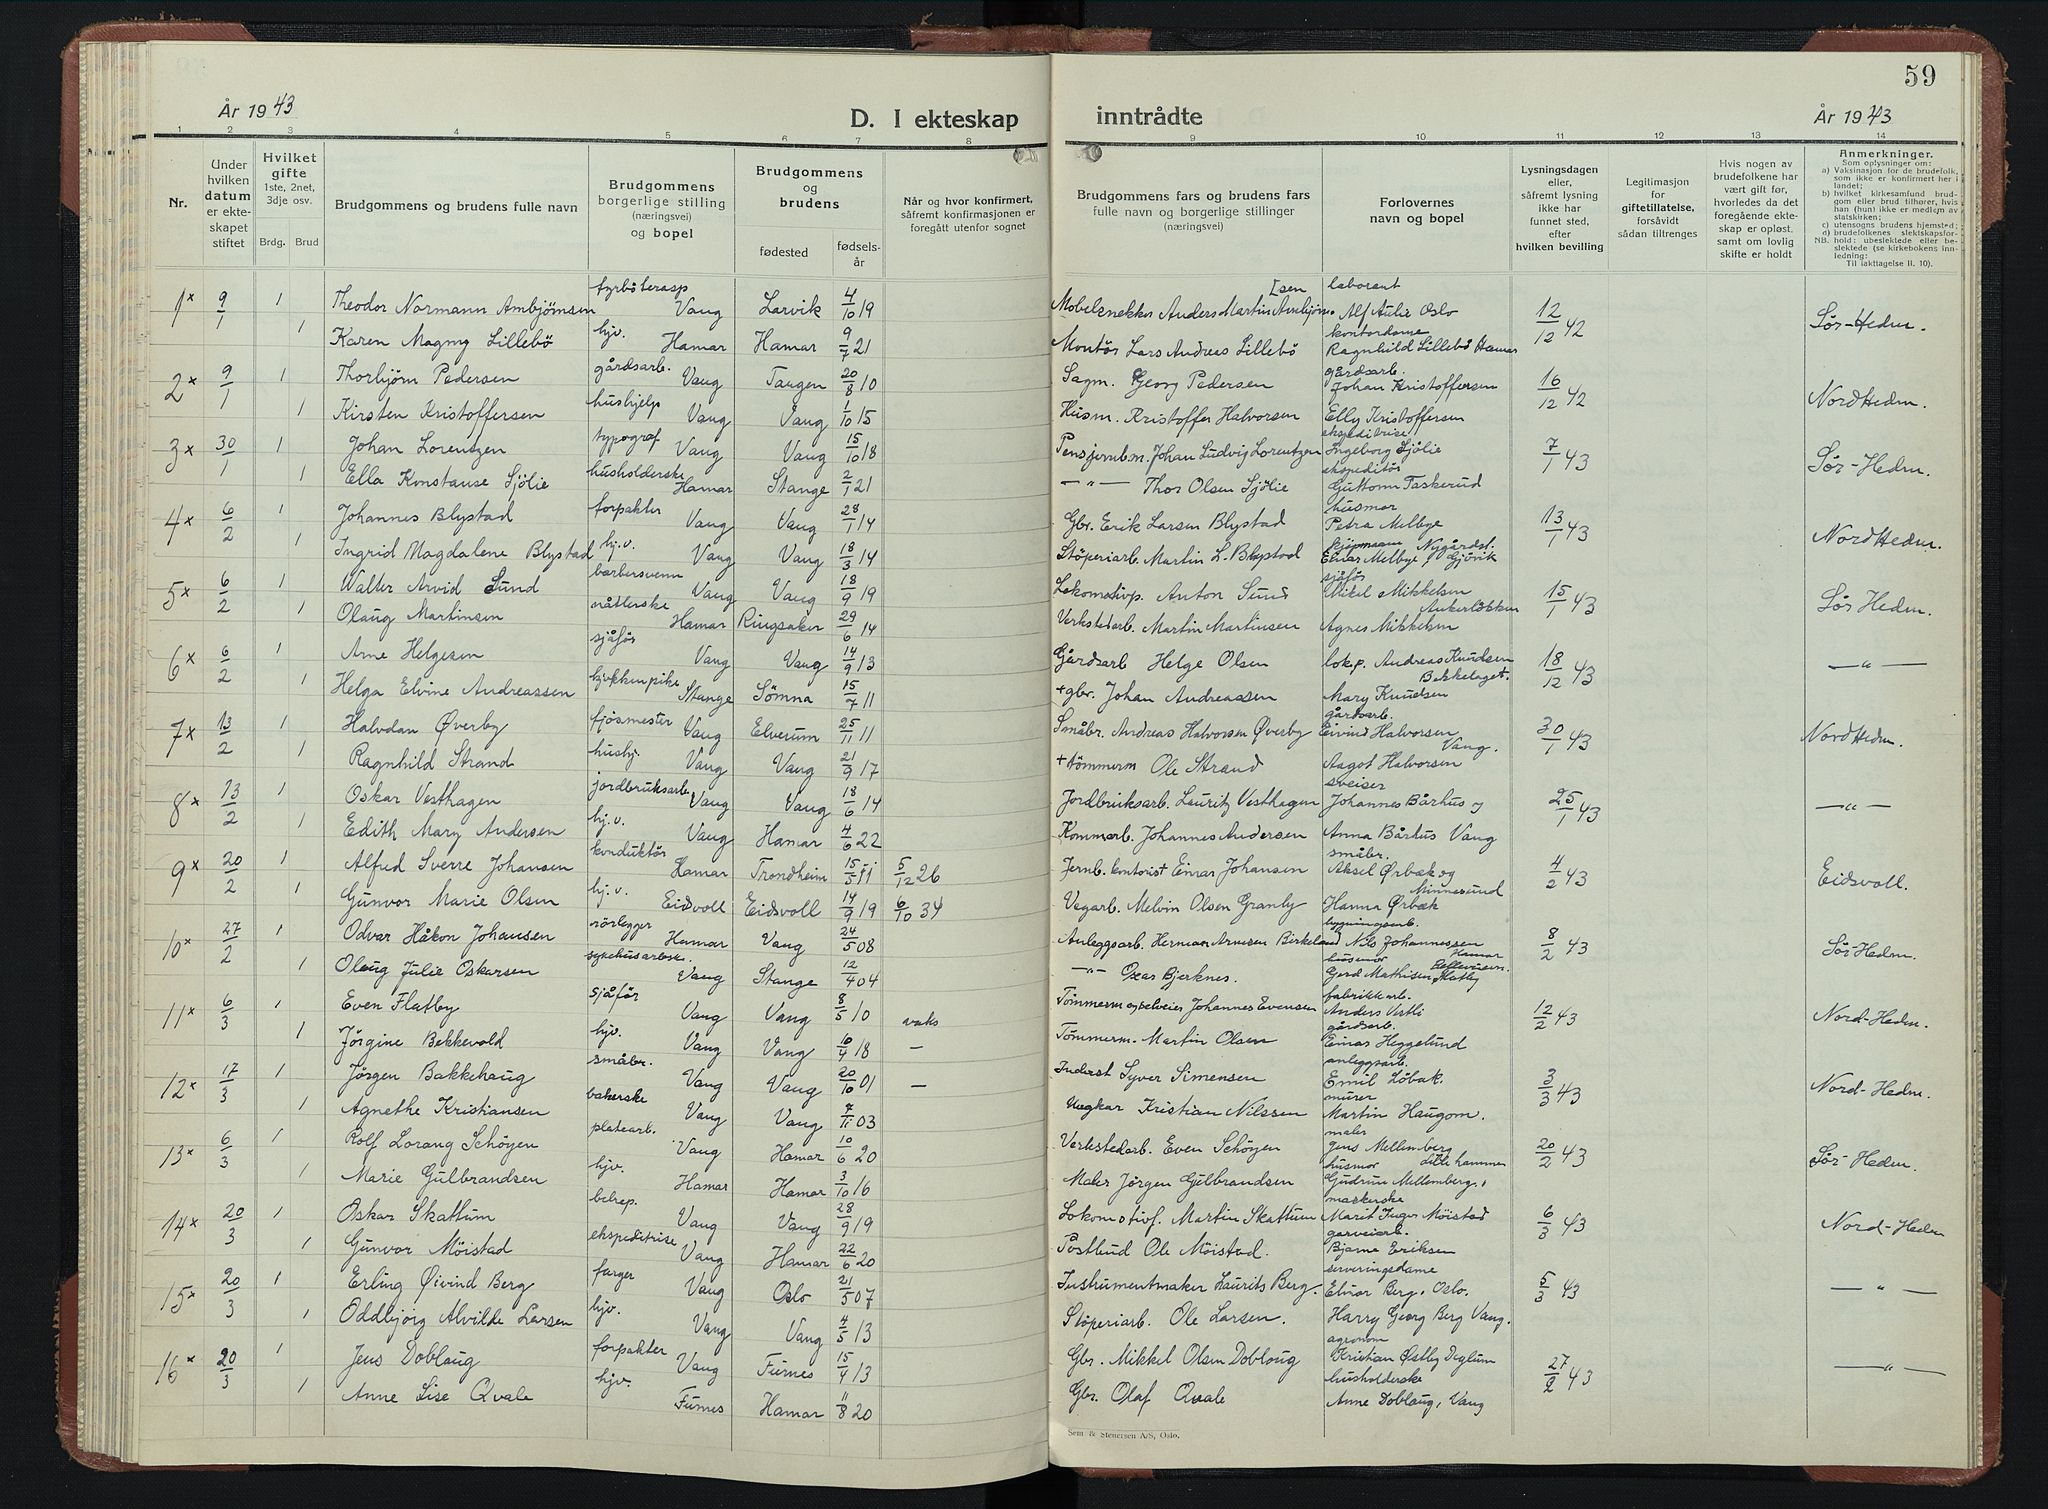 59
År 1943
D. I ekteskap inntrådte
År 1943
1 2 3 4 5 6 7 8 9 10 11 12 13 14
Nr.
Under hvilken datum er ekteskapet stiftet
Hvilket gifte 1ste, 2net, 3dje osv.
Brdg. Brud
Brudgommens og brudens fulle navn
Brudgommens borgerlige stilling (næringsvei) og bopel
Brudgommens og brudens
fødested
fødselsår
Når og hvor konfirmert, såfremt konfirmasjonen er foregått utenfor sognet
Brudgommens fars og brudens fars fulle navn og borgerlige stillinger (næringsvei)
Forlovernes navn og bopel
Lysningsdagen eller, såfremt lysning ikke har funnet sted, efter hvilken bevilling
Legitimasjon for giftetillatelse, forsåvidt sådan tiltrenges
Hvis nogen av brudefolkene har vært gift før, hvorledes da det foregående ekteskap er opløst, samt om lovlig skifte er holdt
Anmerkninger.
Som oplysninger om:
a) Vaksinasjon for de brudefolk, som ikke er konfirmert her i landet;
b) hvilket kirkesamfund brudgom eller brud tilhører, hvis han (hun) ikke er medlem av statskirken;
c) utensogns brudens hjemsted;
d) brudefolkenes slektskapsforhold: ubeslektede eller beslektede (se kirkebokens innledning:
NB. Til iakttagelse II. 10).
1x 9/1 1 Theodor Normann Ambjörnsen fyrböterasp Vang Larvik 4/10 19 Möbelsnekker Anders Martin Ambjörnsen laborant Alf Aulie Oslo 12/12 42 Sør-Hedm.
1 Karen Magny Lillebö hjv. Hamar Hamar 9/7 21 Montör Lars Andreas Lillebö kontordame Ragnhild Lillebö Hamar
2x 9/1 1 Thorbjörn Pedersen gårdsarb. Vang Tangen 20/8 10 Sagm. Georg Pedersen gårdsarb. Johan Kristoffersen 16/12 42 Nord Hedm.
1 Kirsten Kristoffersen hushjelp Vang Vang 1/10 15 Husm. Kristoffer Halvorsen Elly Kristoffersen
3x 30/1 1 Johan Lorentzen typograf Vang Vang 15/10 18 Pensjernb.m. Johan Ludvig Lorentzen ekspeditrise Ingeborg Sjölie 7/1 43 Sør-Hedm.
1 Ella Konstanse Sjölie husholderske Hamar Stange 2/1 21 — " — Thor Olsen Sjölie ekspeditör Guttorm Taskerud
4x 6/2 1 Johannes Blystad forpakter Vang Vang 28/1 14 Gbr. Erik Larsen Blystad husmor Petra Melbye 13/1 43 Nord Hedm.
1 Ingrid Magdalene Blystad hj.v. Vang Vang 18/3 14 Stöperiarb. Martin L. Blystad kjöpmann Nygårdst. Einar Melbye, Gjövik
5x 6/2 1 Walter Arvid Lund barbersvenn Vang Vang 18/9 19 Lokomotivp. Anton Lund sjåför Mikel Mikkelsen 15/1 43 Sør Hedm.
1 Olaug Martinsen nåtlerske Hamar Ringsaker 29/6 14 Verkstedarb. Martin Martinsen Ankerlökken Agnes Mikkelsen
6x 6/2 1 Arne Helgesen sjåför Vang Vang 14/9 13 Gårdsarb Helge Olsen lok.p. Andreas Knudsen Bekkelaget. 18/12 43 — " —
1 Helga Elvine Andreassen kjøkkenpike Stange Sömna 15/7 11 + gbr. Johan Andreassen Mary Knudsen
7x 13/2 1 Halvdan Øverby fjösmester Vang Elverum 25/11 11 Småbr. Andreas Halvorsen Øverby gårdsarb. Eivind Halvorsen Vang. 30/1 43 Nord Hedm.
1 Ragnhild Strand hushj. Vang Vang 21/9 17 + tömmerm Ole Strand Aagot Halvorsen
8x 13/2 1 Oskar Vesthagen jordbruksarb. Vang Vang 18/6 14 Jordbruksarb. Lauritz Vesthagen sveiser Johannes Bårhus og 25/1 43 — " —
1 Edith Mary Andersen hj.v. Vang Hamar 4/6 22 Kommarb. Johannes Andersen Anna Bårhus Vang
9x 20/2 1 Alfred Sverre Johansen konduktör Hamar Trondheim 15/5 11 5/12 26 Jernb. kontorist Einar Johansen småbr. Aksel Ørbæk og 4/2 43 Eidsvoll.
1 Gunvor Marie Olsen hj.v. Eidsvoll Eidsvoll 14/9 19 6/10 34 Vegarb. Melvin Olsen Granby Minnesund Hanna Ørbæk
10x 27/2 1 Odvar Håkon Johansen rörlegger Hamar Vang 24/5 08 Anleggsarb. Herman Arnesen Birkeland bygningsarb. Nils Johannessen Hamar 8/2 43 Sør-Hedm.
1 Olaug Julie Oskarsen sykehusarbsk. Vang Stange 12/4 04 — " — Oscar Bjerknes. husmor Gerd Mathisen,
11x 6/3 1 Even Flatby sjåför Vang Vang 8/5 10 vaks Tömmerm og selveier Johannes Evensen Flatby fabrikkarb. Anders Vestli 12/2 43 Nord-Hedm.
1 Jörgine Bekkevold hjv. Vang Vang 16/4 18 — Tömmerm. Martin Olsen gårdsarb. Einar Heggelund
12x 17/3 1 Jörgen Bakkehaug småbr. Vang Vang 20/10 01 — Inderst Syver Simensen anleggsarb. Emil Löbak. 3/3 43 Nord-Hedm.
1 Agnethe Kristiansen bakerske Vang Vang 7/11 03 Ungkar Kristian Nilssen murer Martin Haugom.
13x 6/3 1 Rolf Lorang Schöyen platearb. Vang Hamar 10/6 20 Verkstedarb. Even Schöyen maler Jens Mellemberg 20/2 43 Sør-Hedm.
1 Marie Gulbrandsen hjv. Hamar Hamar 3/10 16 Maler Jörgen Gulbrandsen husmor Lillehammer Gudrun Mellemberg,
14x 20/3 1 Oskar Skattum belrep. Vang Vang 28/9 19 Lokomotivf. Martin Skattum maskerske Marit Inger Möistad 6/3 43 Nord-Hedm
1 Gunvor Möistad ekspeditrise Vang Hamar 22/6 20 Postbud Ole Möistad. garveiarb. Bjarne Eriksen
15x 20/3 1 Erling Øivind Berg farger Vang Oslo 21/5 07 Instrumentmaker Laurits Berg. serveringsdame Elinor Berg, Oslo. 5/3 43 — " —
1 Oddbjörg Alvilde Larsen hjv. Vang Vang 4/5 13 Stöperiarb. Ole Larsen. Harry Georg Berg Vang.
16x 20/3 1 Jens Dobloug forpakter Vang Furnes 15/4 13 Gbr. Mikkel Olsen Dobloug agronom Kristian Østby Deglum 27/2 43 — " —
1 Anne Lise Qvale hjv. Furnes Hamar 11/8 20 Gbr. Olaf Qvale husholderske Anne Dobloug, Vang
Sem & Stenersen A/S, Oslo.